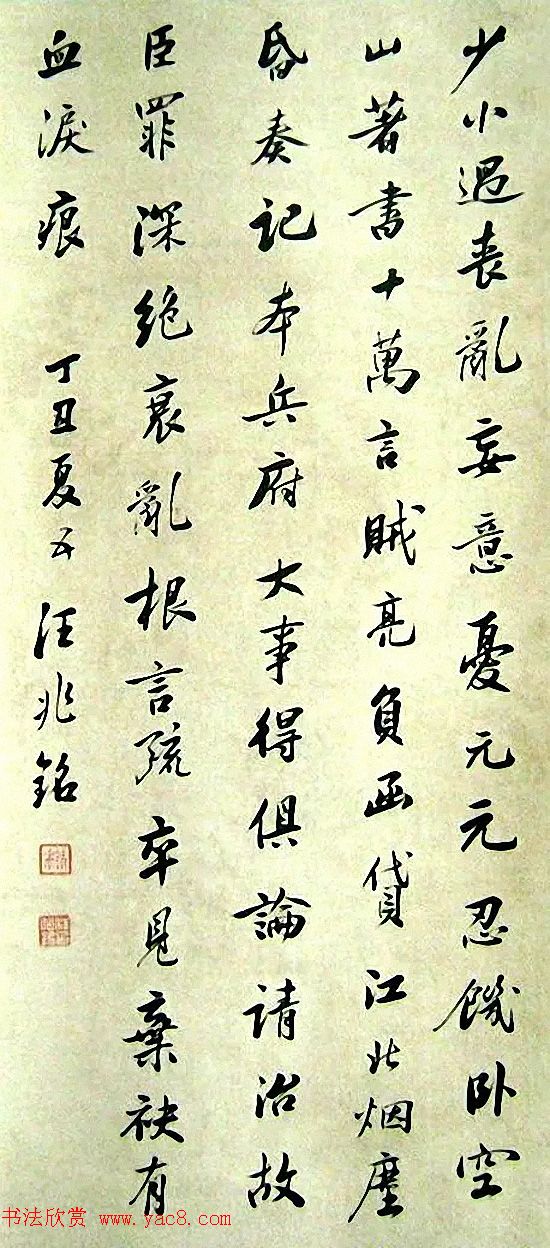 少小遇喪亂妄意憂元元忍饑卧空
山著書十萬言賊亮負函貸江北烟塵
昏奏記本兵府大事得俱論請治故
臣罪深絶衰亂根言疏卒見棄袂有
血淚痕
丁丑夏五汪兆銘
书法欣赏 www.yac8.com